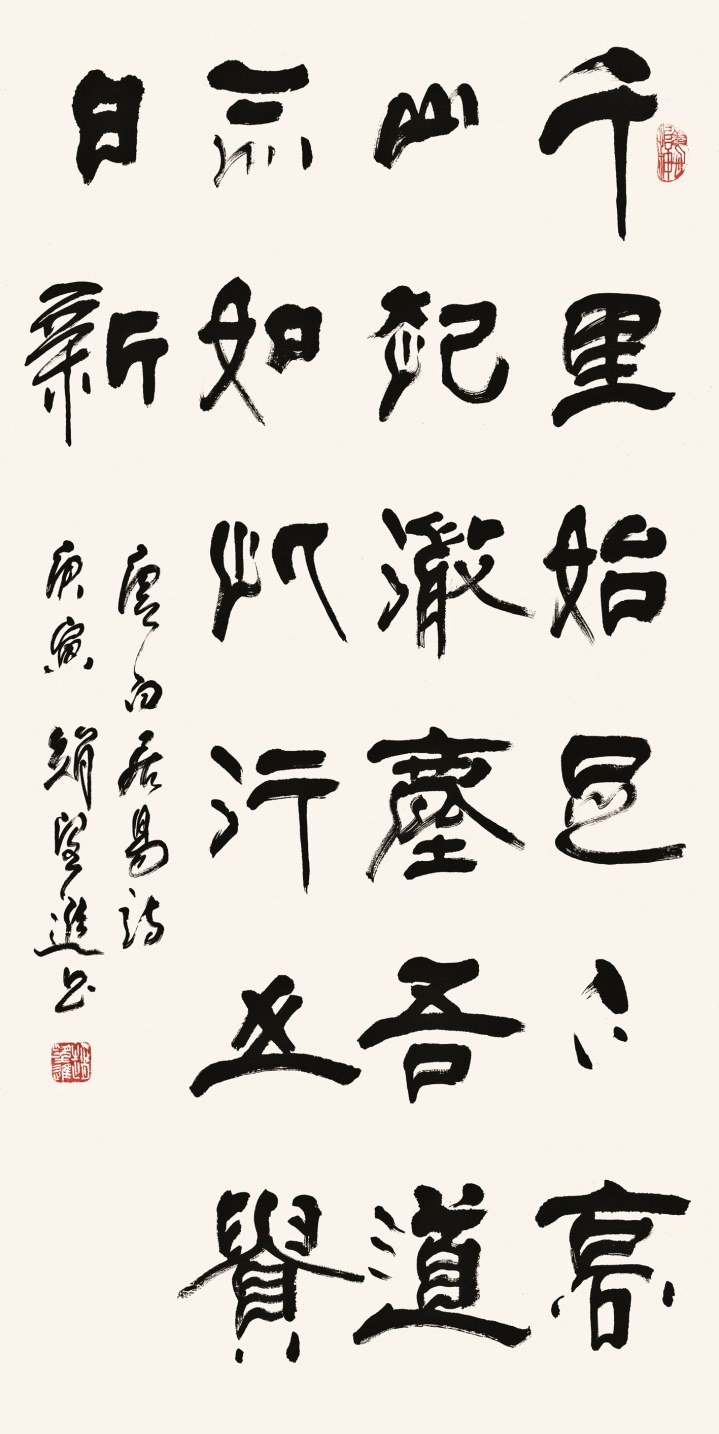 千里始足下高
山起微塵吾道
亦如此行之貴
日新
唐白居易詩
庚寅趙望進書